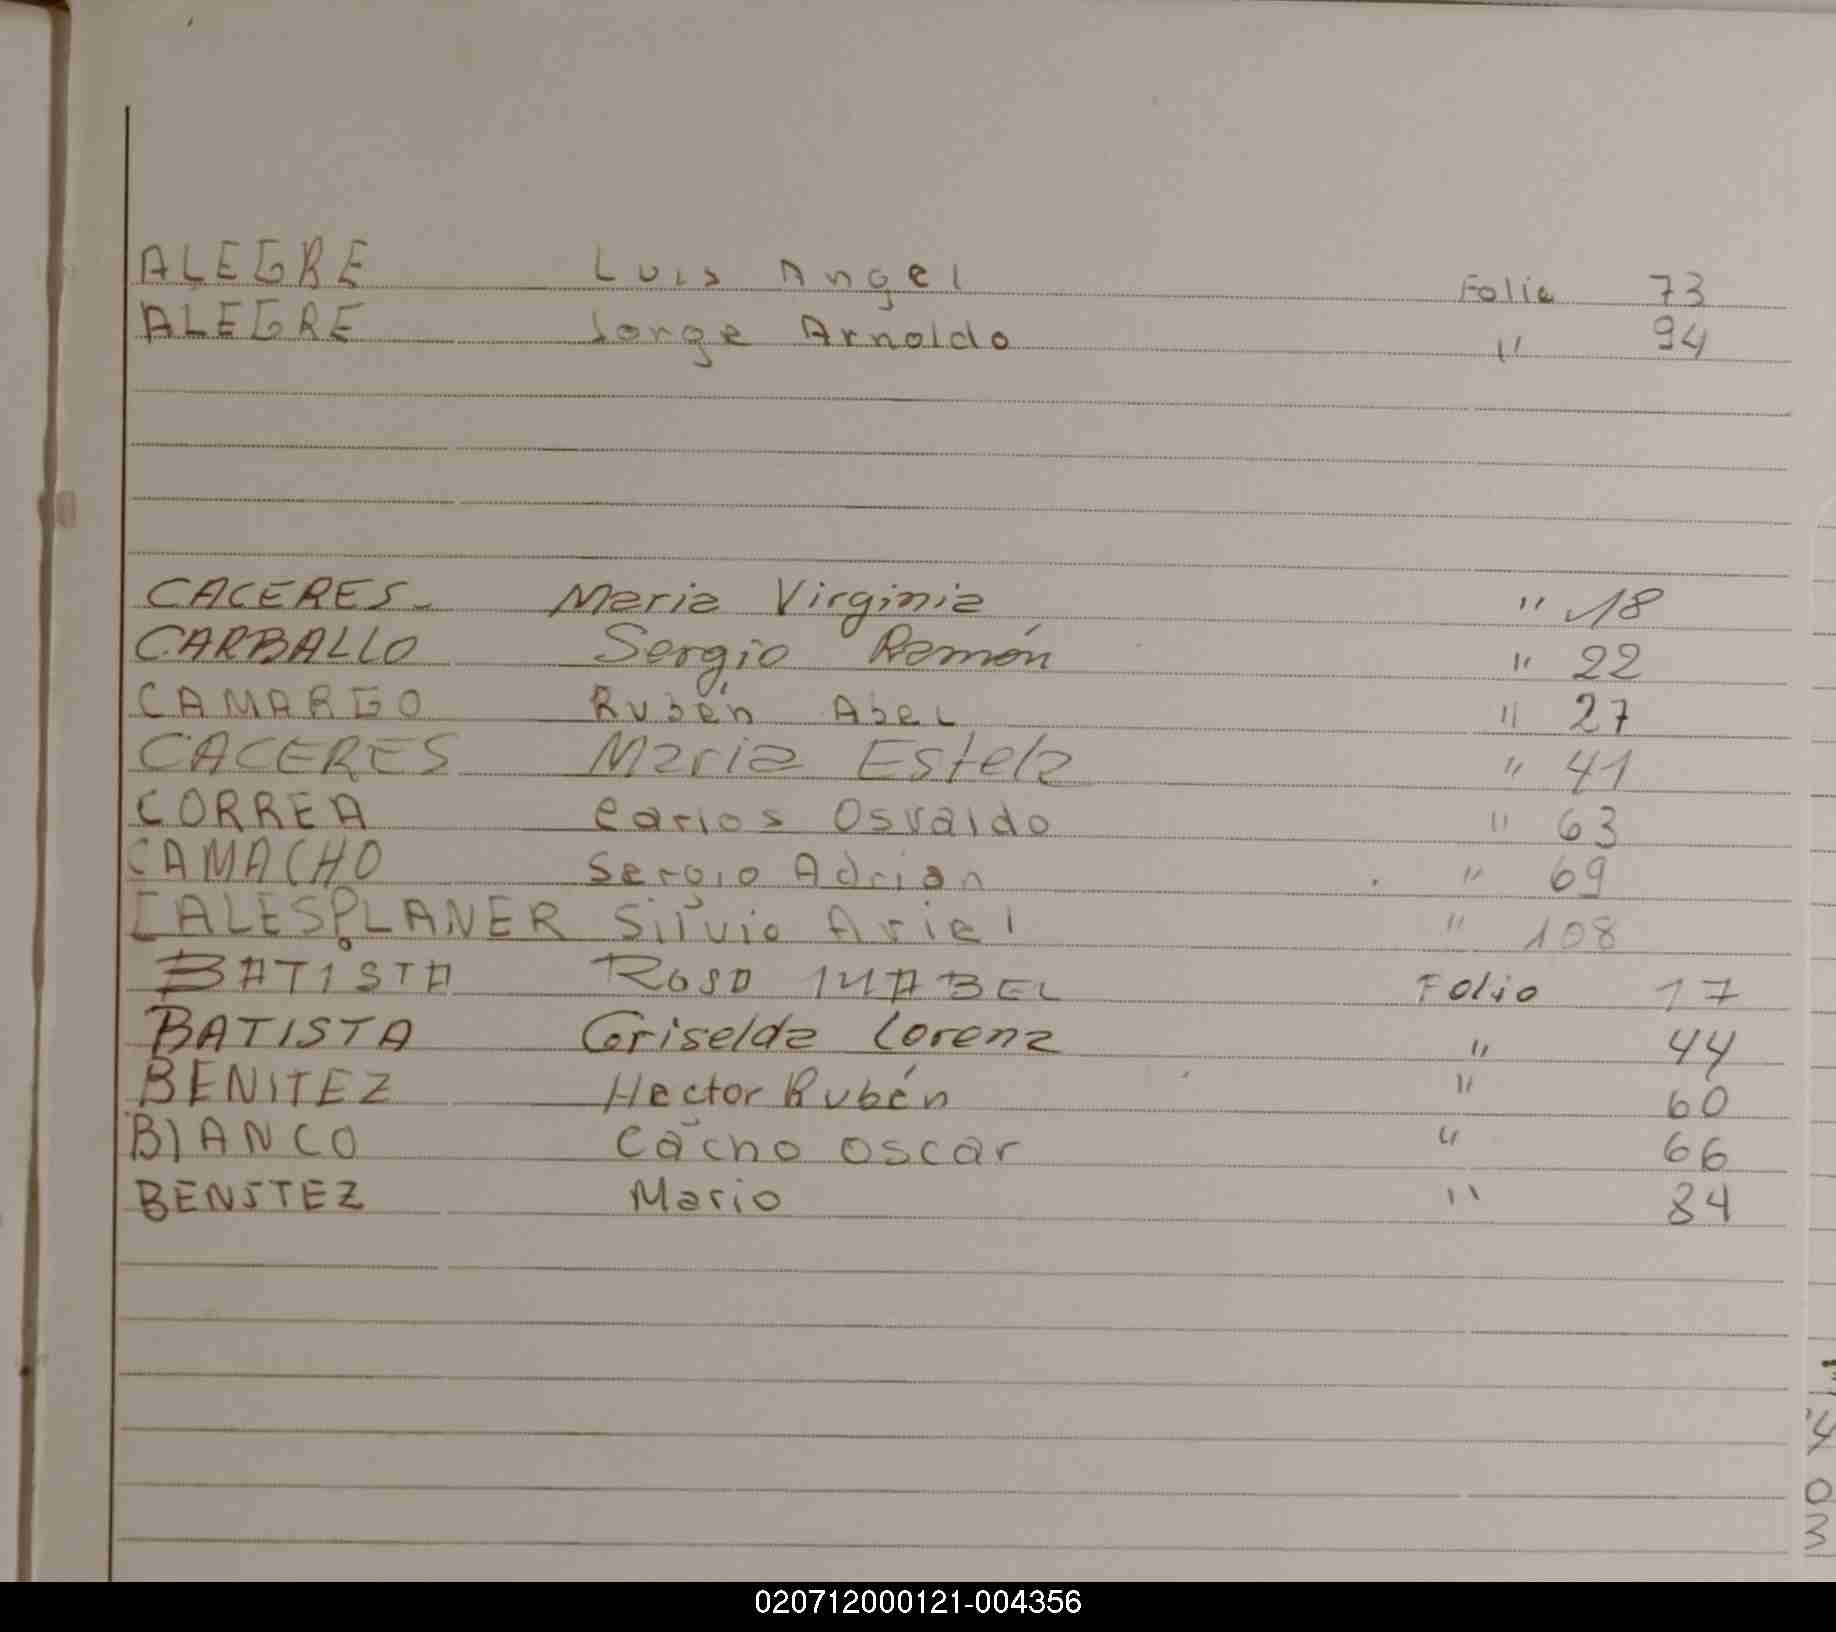 ALEGRE Luis Angel Folio 73
ALEGRE Jorge Arnoldo " 94
CACERES- Maria Virginia " 18
CARBALLO Sergio Ramón " 22
CAMARGO Rubén Abel " 27
CACERES Maria Estela " 41
CORREA Carlos Osvaldo " 63
CAMACHO Sergio Adrian " 69
CALESPLANER Silvio Ariel " 108
BATISTA Rosa Folio 17
BATISTA Griselda Lorena " 44
BENITEZ Hector Rubén " 60
BIANCO Cacho Oscar " 66
BENITEZ Mario " 84
020712000121-004356